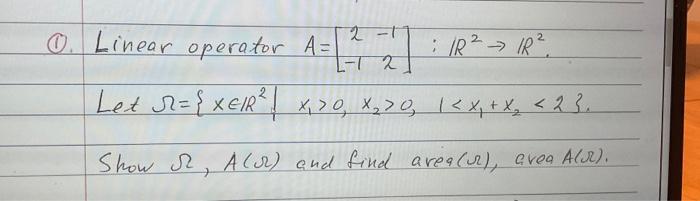 ①. Linear operator A = [2 -1; -1 2] : ℝ² → ℝ².
Let Ω = { x ∈ ℝ² | x₁ > 0, x₂ > 0, 1 < x₁ + x₂ < 2 }.
Show Ω, A(Ω) and find area(Ω), area A(Ω).